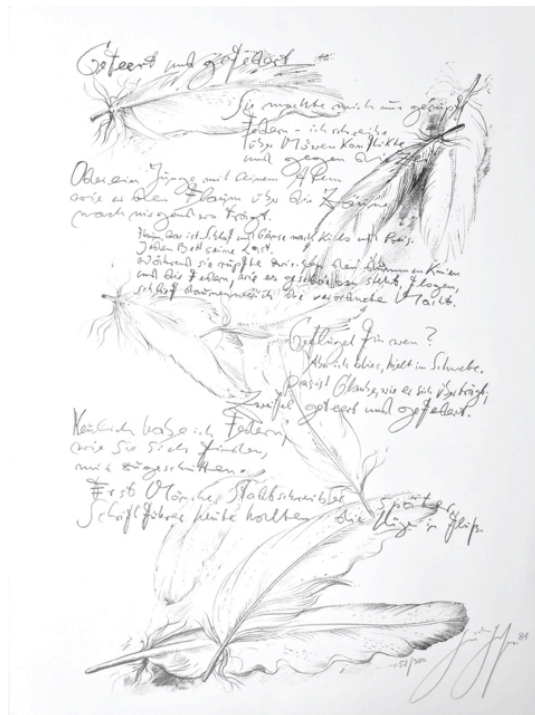 Geteert und gefedert
Sie mochte mich nur gerupft
Federn - ich schreibe
über Möwen Konflikte
und gegen die
Oder ein Junge mit seinem Atem
wie er den Flaum über die Zäune
nach nirgendwo trägt.
Flaum, das ist Schlaf und Gänse nach Kilo und Preis.
Jedem Bett seine Last.
Während sie rupfte zwischen den dummen Knien
und die Federn, wie es geschrieben steht, flogen,
schlief daunenweich die verordnete Macht.
Geflügel für wen?
Aber ich blies, hielt in Schwebe.
Das ist Glaube, wie er sich überträgt;
Zweifel geteert und gefedert.
Neulich habe ich Federn,
wie sie sich finden,
mir zugeschnitten.
Erst Mönche, Stadtschreiber später,
Schriftführer heute halten die Lüge in Fluß.
152/300
81